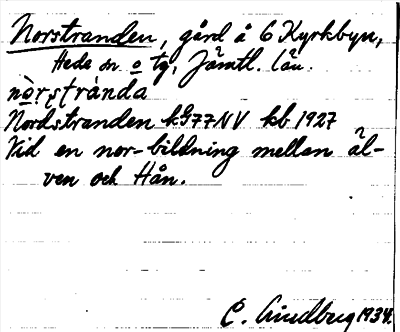 Norstranden, gård å 6 Kyrkbyn,
Hede sn o tg, Jämtl. län.
nòrstránda
Nordstranden kG77NV kb 1927
Vid en nor-bildning mellan äl-
ven och Hån.
C. Lindberg 1934.